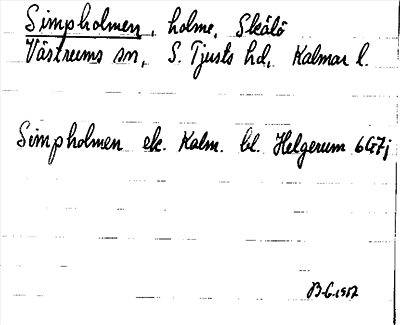 Simpholmen, holme, Skälö
Västrums sn, S. Tjusts hd, Kalmar l.
Simpholmen ek. Kalm. bl. Helgerum 6G7j
B-G. 1957